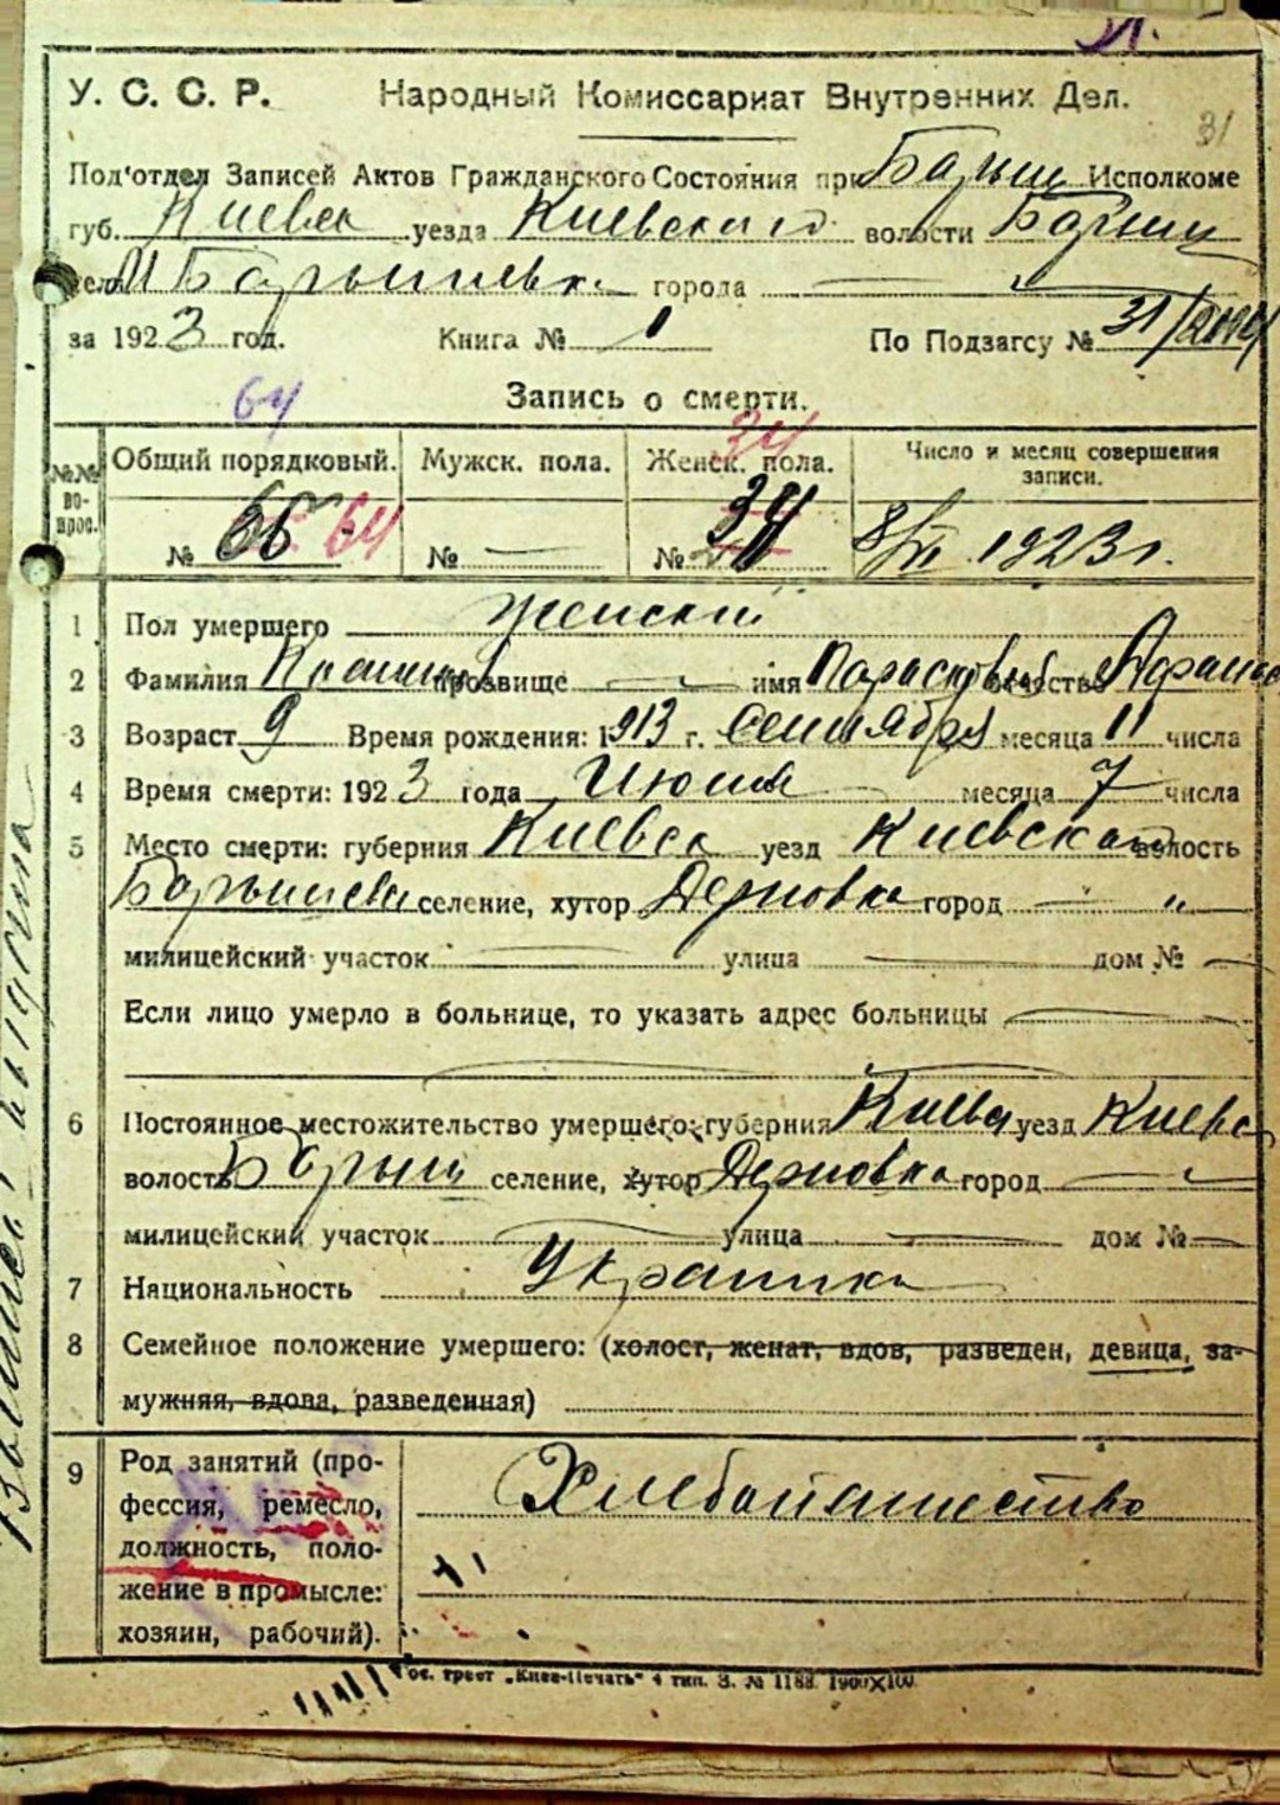 31
У. С. С. Р. Народный Комиссариат Внутренних Дел.
Под'отдел Записей Актов Гражданского Состояния при Барыш Исполкоме
губ. Киевск уезда Киевского волости Барыш
села М Барышевк. города
за 1923 год. Книга № 1 По Подзагсу № 31/
Запись о смерти.
64
34
№№ вопрос. Общий порядковый. Мужск. пола. Женск. пола. Число и месяц совершения записи.
№ 64 № — № 34 8/VII 1923 г.
1 Пол умершего женский
2 Фамилия прозвище — имя Парасковья отчество Афанас
3 Возраст 9 Время рождения: 1913 г. Сентября месяца 11 числа
4 Время смерти: 1923 года Июля месяца 7 числа
5 Место смерти: губерния Киевск уезд Киевский волость
Барышевск селение, хутор Дерновка город — "
милицейский участок — улица — дом № —
Если лицо умерло в больнице, то указать адрес больницы —
6 Постоянное местожительство умершего: губерния Киевск уезд Киевс
волость Барыш селение, хутор Дерновка город —
милицейский участок — улица — дом № —
7 Национальность Украинка
8 Семейное положение умершего: (холост, женат, вдов, разведен, девица, за-
мужняя, вдова, разведенная)
9 Род занятий (про-
фессия, ремесло,
должность, поло-
жение в промысле:
хозяин, рабочий).
Хлебопашество
Гос. трест „Киев-Печать" 4 тип. З. № 1188. 1900X100